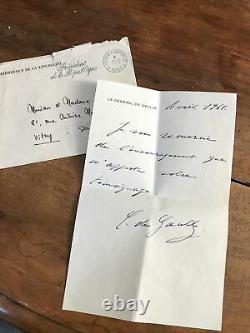 PRÉSIDENCE DE LA RÉPUBLIQUE
Président
de la République
Monsieur et Madame
81, rue Antoine
Vitry
LE GÉNÉRAL DE GAULLE
Avril 1961.
Je vous remercie
de l'encouragement que
m'apporte votre
témoignage.
C. de Gaulle
ebay